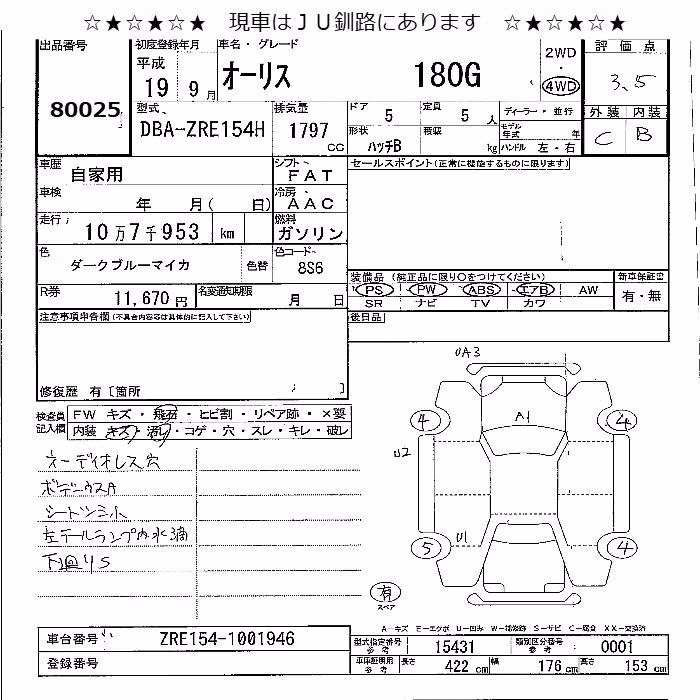 ☆★☆★☆★ 現車はＪＵ釧路にあります ☆★☆★☆★
出品番号
80025
初度登録年月
平成
19 9月
車名・グレード
オーリス 180G
2WD
・
4WD
評価点
3.5
外装 内装
C B
型式
DBA-ZRE154H
排気量
1797
CC
ドア
5
定員
5 人
形状
ハッチB
積載
kg
ディーラー・並行
モデル年式 年
ハンドル 左・右
車歴
自家用
シフト
FAT
車検
年 月( 日)
冷房
AAC
走行
10万7千953 km
燃料
ガソリン
色
ダークブルーマイカ 色替
色コード
8S6
R券
11,670 円
名変通知期限
月 日
セールスポイント(正常に機能するものに限ります)
装備品 (純正品に限り○をつけてください)
PS PW ABS エアB AW
SR ナビ TV カワ
新車保証書
有・無
後日品
注意事項申告欄(不具合内容等は具体的に記入して下さい)
修復歴 有〔箇所 〕
検査員記入欄
FW キズ・飛石・ヒビ割・リペア跡・×要
内装 キズ・汚れ・コゲ・穴・スレ・キレ・破レ
オーディオレス穴
ボデーウスA
シートシミ小
左テールランプ内水滴
下回りS
UA3
A1
4 4
U2
U1
5 4
有
スペア
A-キズ E-エクボ U-凹み W-補修跡 S-サビ C-腐食 XX-交換済
車台番号
ZRE154-1001946
登録番号
型式指定番号 参考
15431
類別区分番号 参考
0001
車庫証明用 参考
長さ 422 cm 幅 176 cm 高さ 153 cm